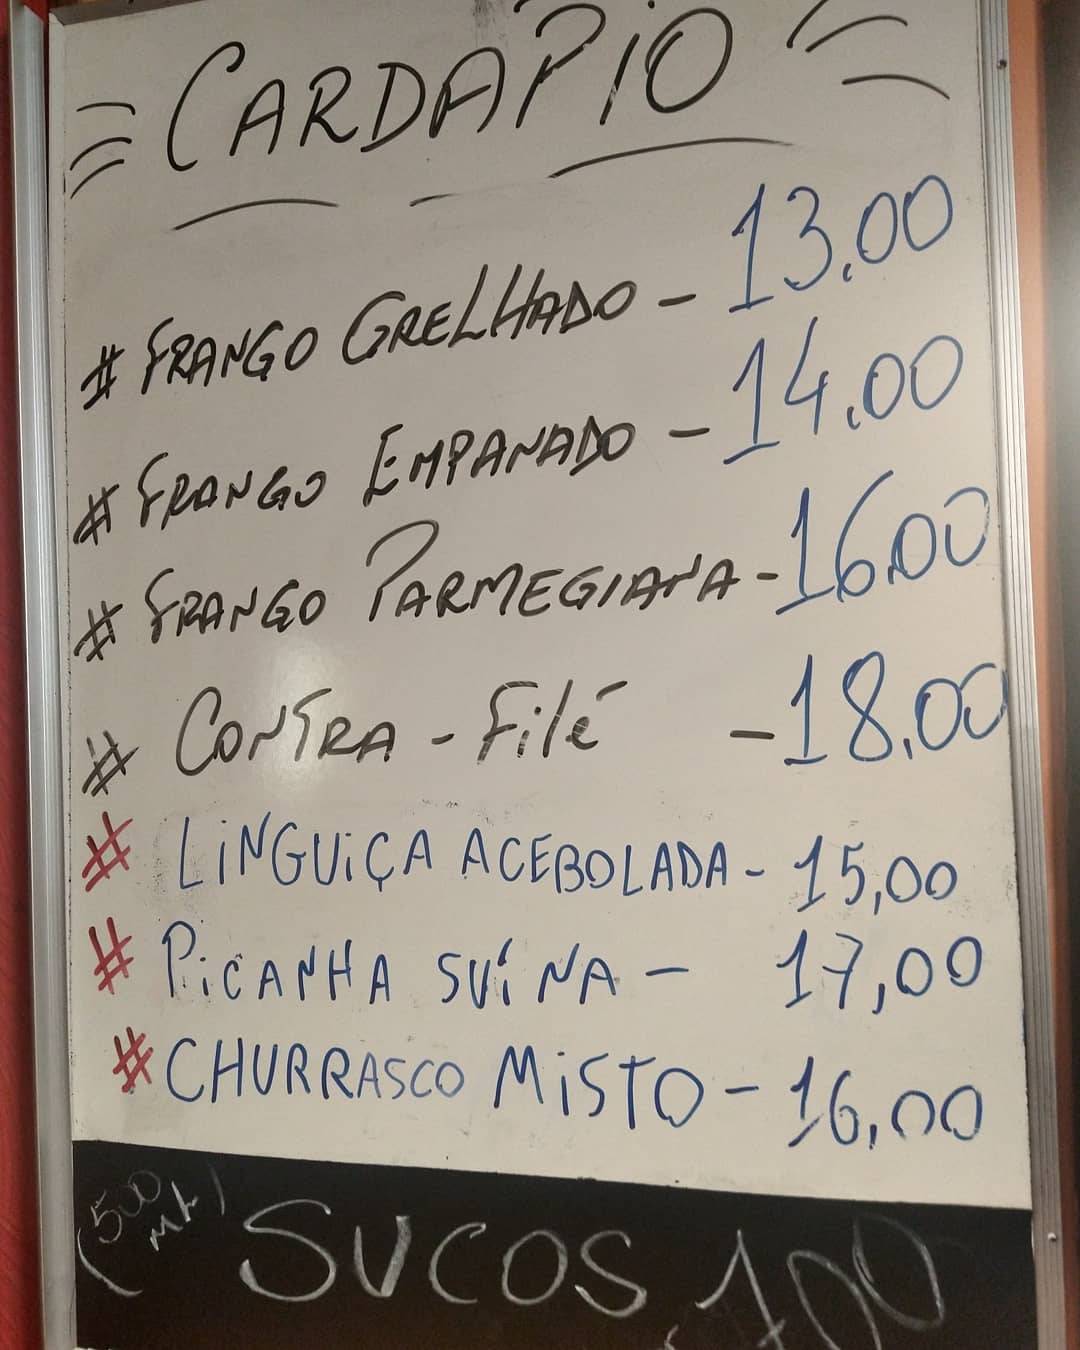 CARDAPIO
# FRANGO GRELHADO - 13,00
# FRANGO EMPANADO - 14,00
# FRANGO PARMEGIANA - 16,00
# CONTRA - Filé - 18,00
# LiNGUiÇA ACEBOLADA - 15,00
# PiCANHA SUÍNA - 17,00
# CHURRASCO MiSTO - 16,00
(500 ML) SUCOS